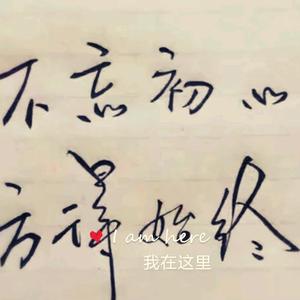 不忘初心
方得始终
I am here
我在这里